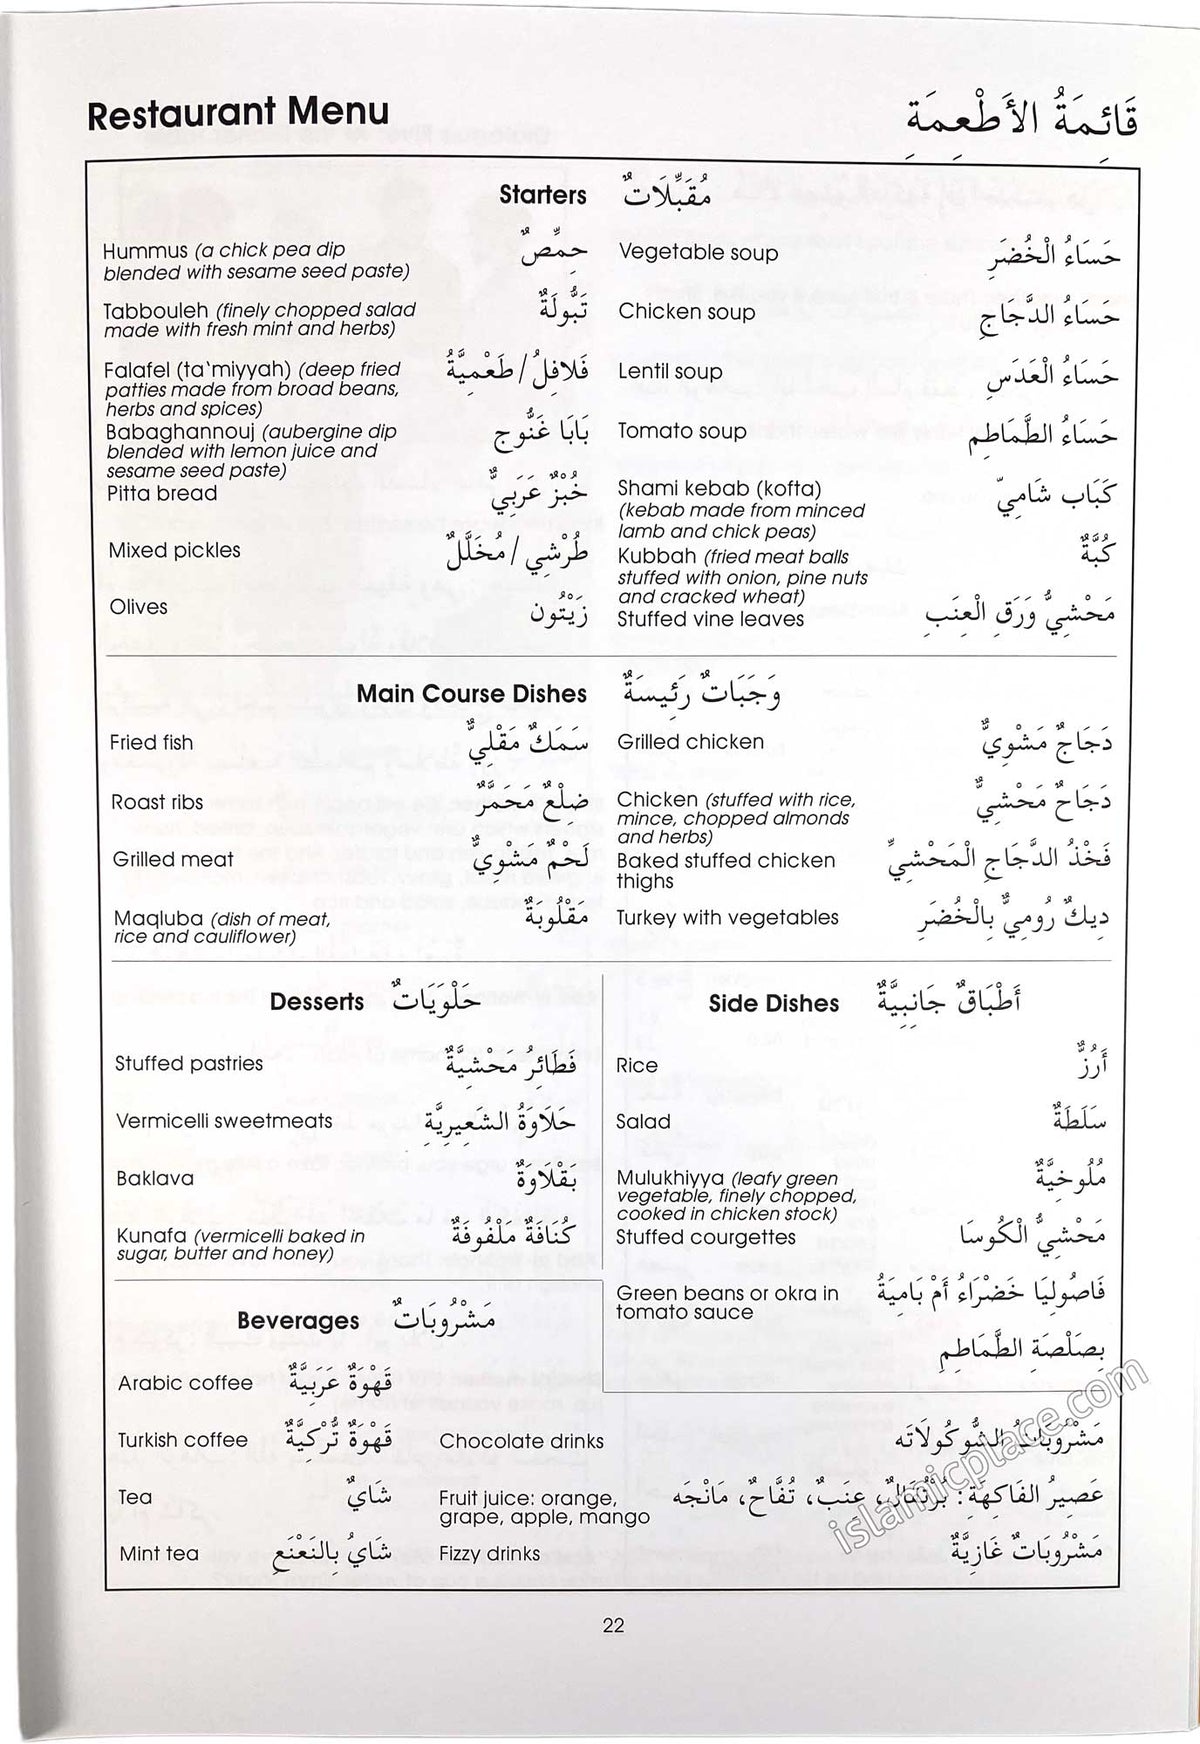 Restaurant Menu
قَائِمَةُ الأَطْعِمَةِ
Starters مُقَبِّلَاتٌ
Hummus (a chick pea dip حِمِّصٌ
blended with sesame seed paste)
Vegetable soup حَسَاءُ الْخُضَرِ
Tabbouleh (finely chopped salad تَبُّولَةٌ
made with fresh mint and herbs)
Chicken soup حَسَاءُ الدَّجَاجِ
Falafel (ta‛miyyah) (deep fried فَلَافِلُ / طَعْمِيَّةٌ
patties made from broad beans,
herbs and spices)
Lentil soup حَسَاءُ الْعَدَسِ
Babaghannouj (aubergine dip بَابَا غَنُّوج
blended with lemon juice and
sesame seed paste)
Tomato soup حَسَاءُ الطَّمَاطِمِ
Pitta bread خُبْزٌ عَرَبِيٌّ
Shami kebab (kofta) كَبَاب شَامِيّ
(kebab made from minced
lamb and chick peas)
Mixed pickles طُرْشِي / مُخَلَّلٌ
Kubbah (fried meat balls كُبَّةٌ
stuffed with onion, pine nuts
and cracked wheat)
Olives زَيْتُون
Stuffed vine leaves مَحْشِيُّ وَرَقِ الْعِنَبِ
Main Course Dishes وَجَبَاتٌ رَئِيسَةٌ
Fried fish سَمَكٌ مَقْلِيٌّ
Grilled chicken دَجَاجٌ مَشْوِيٌّ
Roast ribs ضِلْعٌ مَحَمَّرٌ
Chicken (stuffed with rice, دَجَاحٌ مَحْشِيٌّ
mince, chopped almonds
and herbs)
Grilled meat لَحْمٌ مَشْوِيٌّ
Baked stuffed chicken فَخْذُ الدَّجَاجِ الْمَحْشِيِّ
thighs
Maqluba (dish of meat, مَقْلُوبَةٌ
rice and cauliflower)
Turkey with vegetables دِيكٌ رُومِيٌّ بِالْخُضَرِ
Desserts حَلْوَيَاتٌ
Stuffed pastries فَطَائِرُ مَحْشِيَّةٌ
Vermicelli sweetmeats حَلَاوَةُ الشَّعِيرِيَّةِ
Baklava بَقْلَاوَةٌ
Kunafa (vermicelli baked in كُنَافَةٌ مَلْفُوفَةٌ
sugar, butter and honey)
Side Dishes أَطْبَاقٌ جَانِبِيَّةٌ
Rice أَرُزٌّ
Salad سَلَطَةٌ
Mulukhiyya (leafy green مُلُوخِيَّةٌ
vegetable, finely chopped,
cooked in chicken stock)
Stuffed courgettes مَحْشِيُّ الْكُوسَا
Green beans or okra in فَاصُولِيَا خَضْرَاءُ أَمْ بَامِيَةُ
tomato sauce
بِصَلْصَةِ الطَّمَاطِمِ
Beverages مَشْرُوبَاتٌ
Arabic coffee قَهْوَةٌ عَرَبِيَّةٌ
Turkish coffee قَهْوَةٌ تُرْكِيَّةٌ
Chocolate drinks مَشْرُوبَاتُ الشُّوكُولَاتَه
Tea شَايٌ
Fruit juice: orange, عَصِيرُ الفَاكِهَةِ: بُرْتُقَالٌ، عِنَبٌ، تُفَّاح، مَانْجَه
grape, apple, mango
Mint tea شَايُ بِالنَعْنَعِ
Fizzy drinks مَشْرُوبَاتٌ غَازِيَّةٌ
islamicplace.com
22